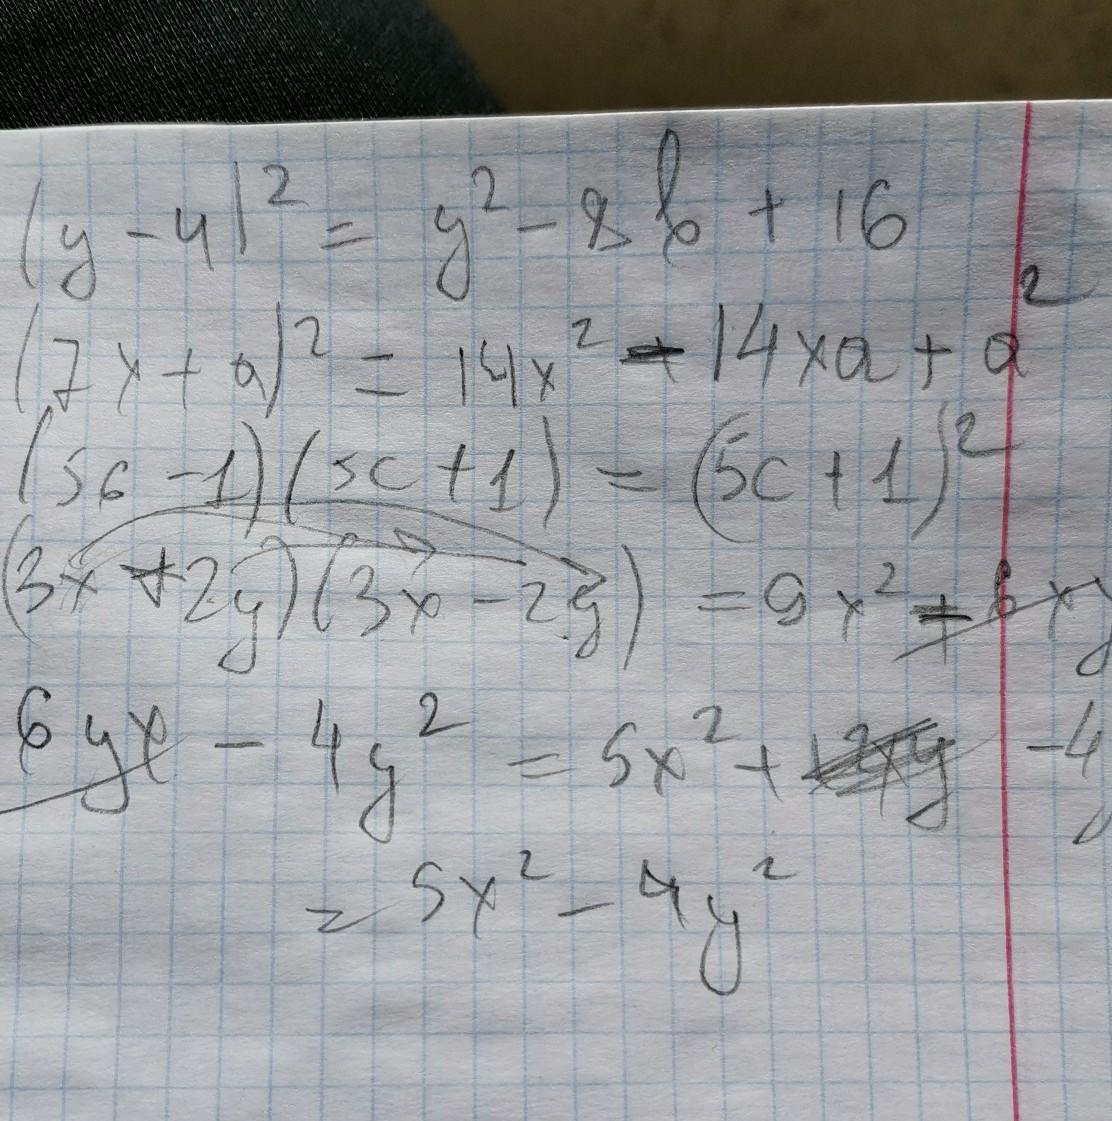 (y - 4)² = y² - 8b + 16
(7x + a)² = 14x² + 14xa + a²
(5c - 1)(5c + 1) = (5c + 1)²
(3x + 2y)(3x - 2y) = 9x² + 6xy
6yx - 4y² = 5x² + - 4y
= 5x² - 4y²